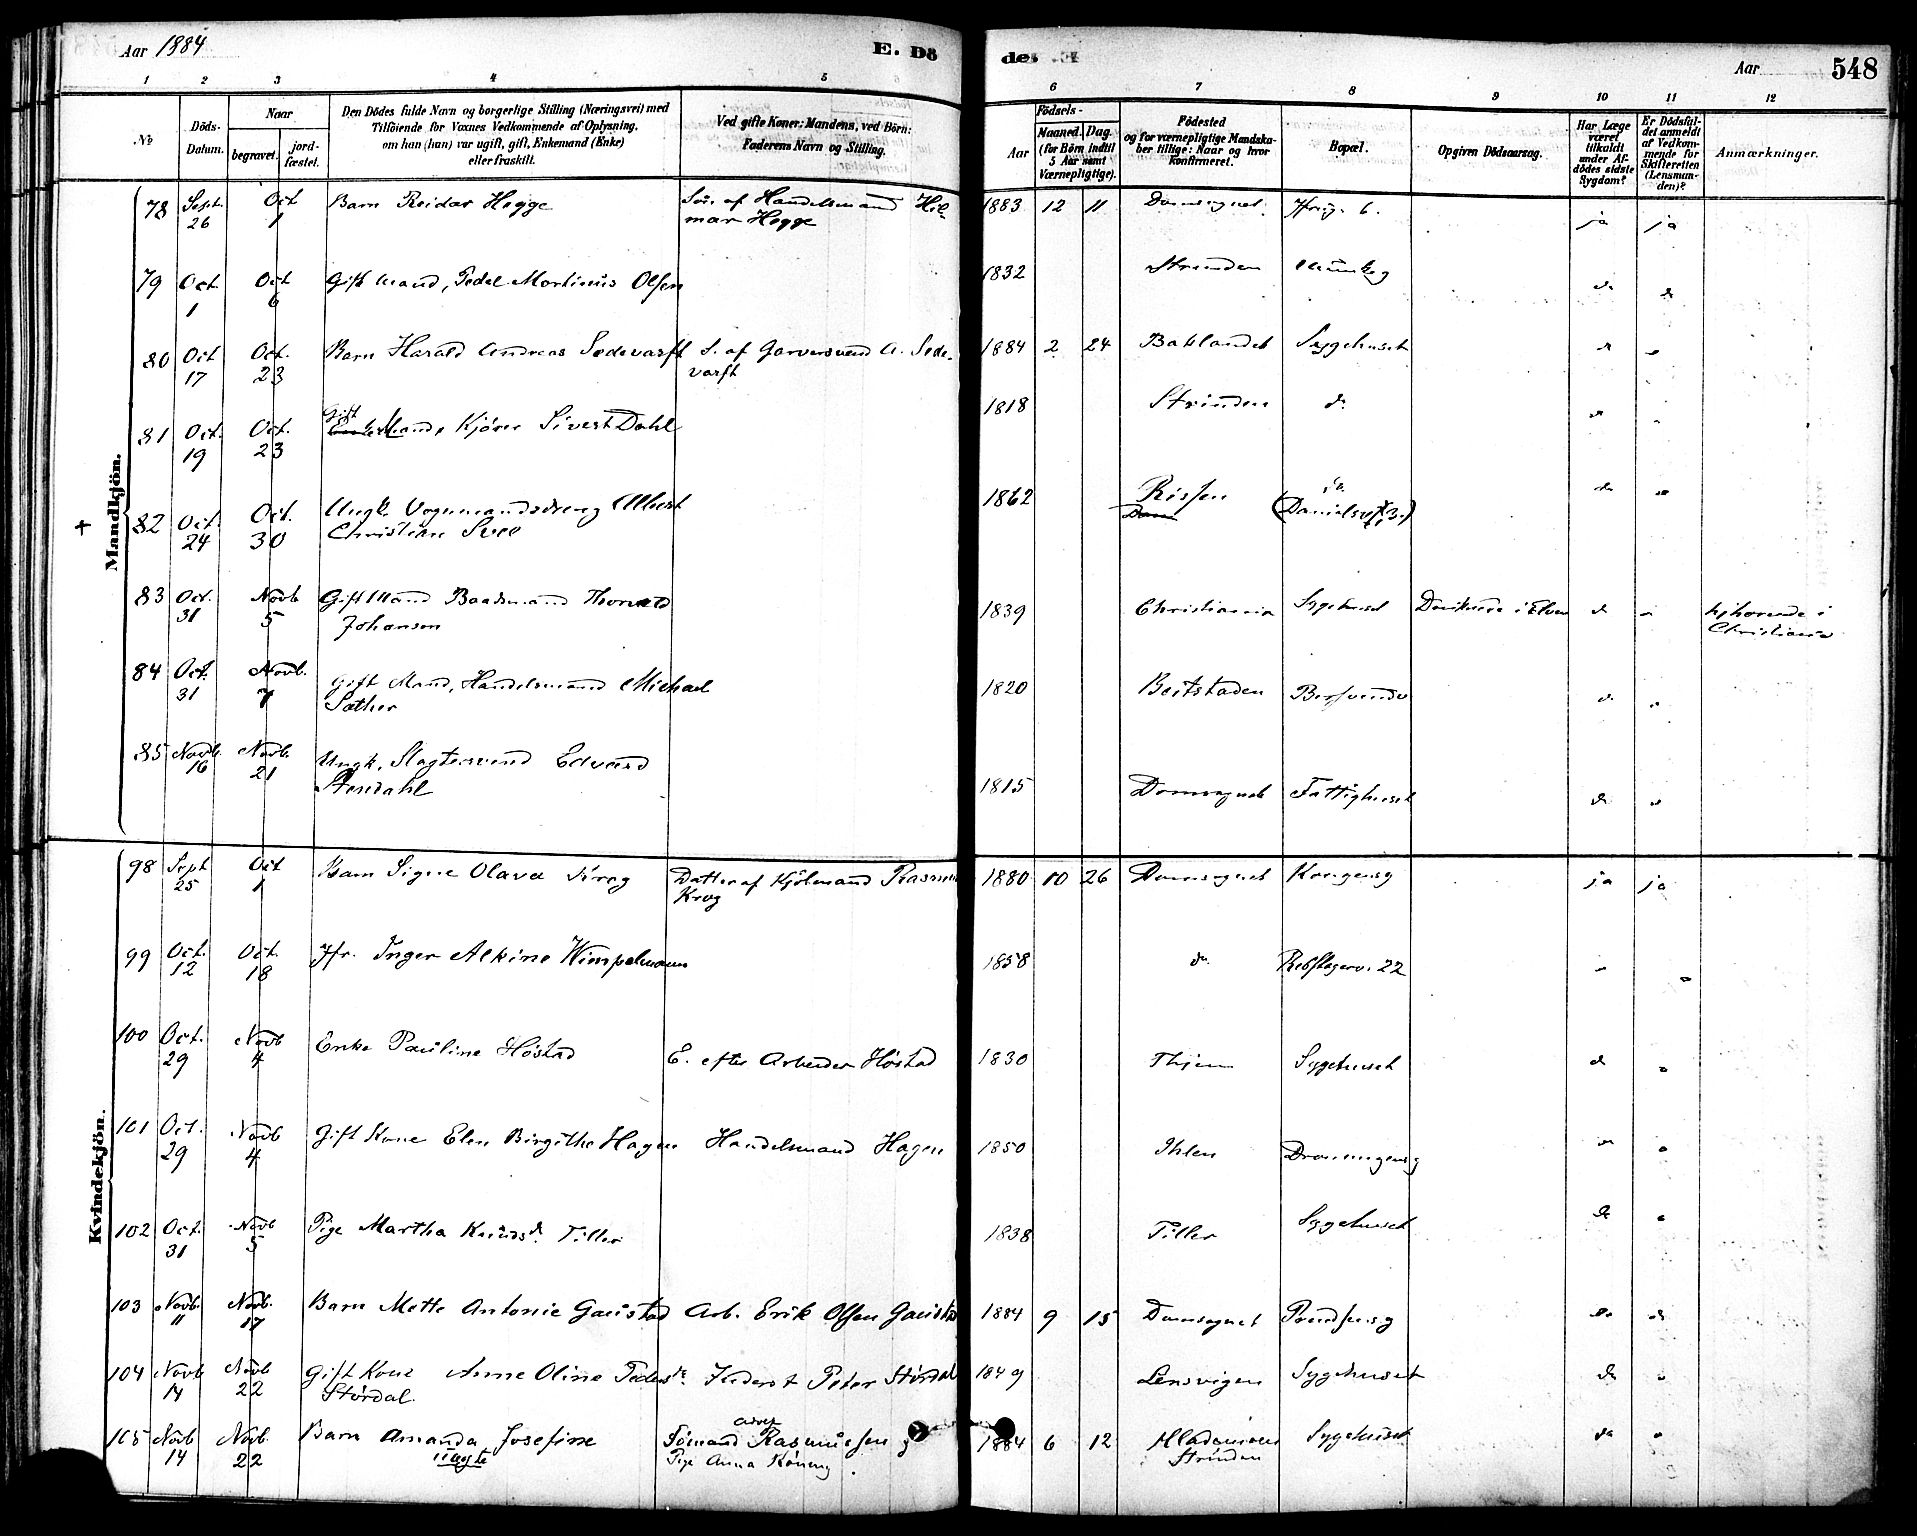 Aar 1884
E. Dö
de. E.
Aar
548
1 2 3 4 5 6 7 8 9 10 11 12
No
Döds-Datum.
Naar
begravet.
jord-fæstet.
Den Dödes fulde Navn og borgerlige Stilling (Næringsvei) med
Tilföiende for Voxnes Vedkommende af Oplysning,
om han (hun) var ugift, gift, Enkemand (Enke)
eller fraskilt.
Ved gifte Koner: Mandens, ved Börn:
Faderens Navn og Stilling.
Födsels-
Aar
Maaned. Dag.
(for Börn indtil
5 Aar samt
Værnepligtige).
Födested
og for værnepligtige Mandska-
ber tillige: Naar og hvor
Konfirmeret.
Bopæl.
Opgiven Dödsaarsag.
Har Læge
været
tilkaldt
under Af-
dödes sidste
Sygdom?
Er Dödsfal-
det anmeldt
af Vedkom-
mende for
Skifteretten
(Lensman-
den)?
Anmærkninger.
Mandkjön.
78 Sept. 26 Oct 1 Barn Reidar Hegge Sön. af Handelsmand Hil-
mar Hegge 1883 12 11 Domsognet. 6. ja ja
79 Oct. 1 Oct 6 Gift Mand, Pedel Martinus Olsen 1832 Strinden Munkeg do do
80 Oct 17 Oct. 23 Barn Harald Andreas Sedevarft S. af Garversvend A. Sede-
varft 1884 2 24 Baklandet Sygehuset
81 Oct. 19 Oct. 23 Gift Mand, Kjörer Sivert Dahl 1818 Strinden do
+ 82 Oct. 24 Oct. 30 Ungk. Vognmandsdreng Albert
Christian Svee 1862 Rissen do
(Danielsv. 3.)
83 Oct. 31 Novb 5 Gift Mand Baadsmand Thorvald
Johansen 1839 Christiania Sygehuset Druknede i Elven do hjhörende i
Christiania
84 Oct. 31 Novb. 7 Gift Mand, Handelsmand Michael
Sæther 1820 Beitstaden Bersvendv do
85 Novb. 16 Novb. 21 Ungk. Slagtersvend Edvard
Stendahl 1815 Domsognet Fattighuset do
Kvindekjön.
98 Sept 25 Oct 1 Barn Signe Olava Krog Datter af Kjölmand Rasmus
Krog 1880 10 26 Domsognet Kongensg ja ja
99 Oct. 12 Oct. 18 Jfr. Inger Alkine Wimpelmann 1858 do Rebslagerv. 22
100 Oct. 29 Novb 4 Enke Pauline Höstad E. efter Arbeider Höstad 1830 Sygehuset do
101 Oct. 29 Novb 4 Gift Kone Elen Birgitha Hagen Handelsmand Hagen 1850 Ihlen Dronningensg
102 Oct. 31 Novb 5 Pige Martha Knudsd. Tiller 1838 Tiller Sygehuset do
103 Novb. 11 Novb. 17 Barn Mette Antonie Gaustad Arb. Erik Olsen Gaustad 1884 9 15 Domsognet do do
104 Novb 14 Novb 22 Gift Kone Anne Oline Pedersdr. Inderst Peter Stördal
Stördal. 1849 Lensvigen Sygehuset do
105 Novb 14 Novb. 22 Barn Amanda Josefine
uægte
Sömand Rasmussen g
Pige Anna 1884 6 12 Hladeמoen
Strinden Sygehuset do